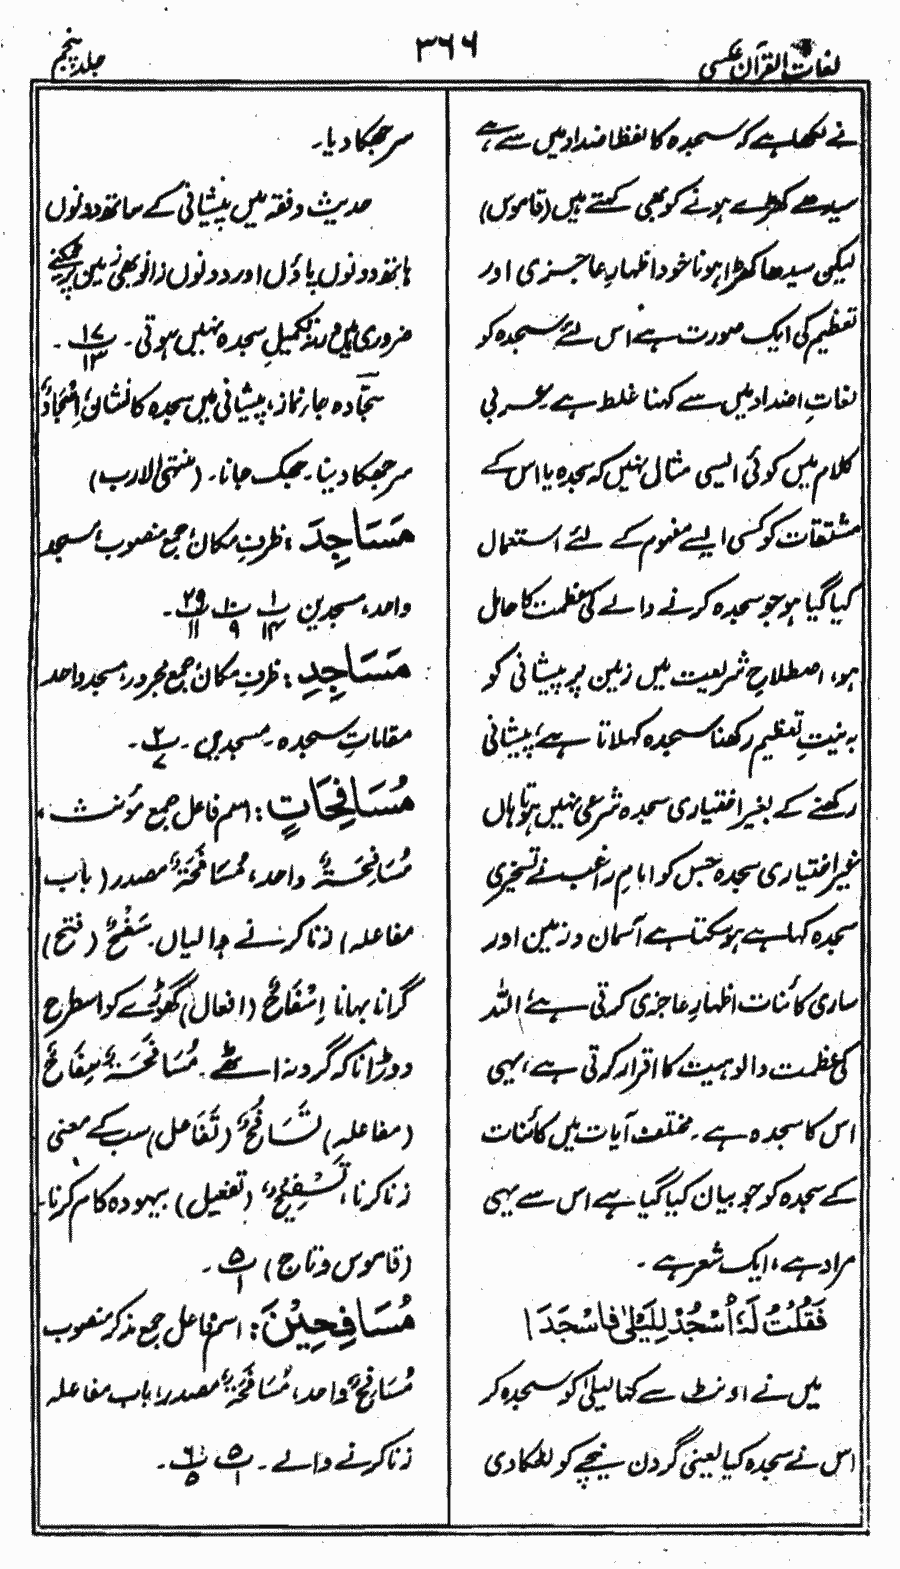 لغات القرآن عکسی
۳۶۶
جلد پنجم
نے لکھا ہے کہ سجدہ کا لفظ اضداد میں سے ہے
سیدھے کھڑے ہونے کو بھی کہتے ہیں (قاموس)
لیکن سیدھا کھڑا ہونا خود اظہارِ عاجزی اور
تعظیم کی ایک صورت ہے اس لئے سجدہ کو
لغاتِ اضداد میں سے کہنا غلط ہے۔ عربی
کلام میں کوئی ایسی مثال نہیں کہ سجدہ یا اس کے
مشتقات کو کسی ایسے مفہوم کے لئے استعمال
کیا گیا ہو جو سجدہ کرنے والے کی عظمت کا حامل
ہو، اصطلاحِ شریعت میں زمین پر پیشانی کو
بہ نیتِ تعظیم رکھنا سجدہ کہلاتا ہے، پیشانی
رکھنے کے بغیر اختیاری سجدہ شرعی نہیں ہوتا ہاں
غیر اختیاری سجدہ جس کو امام راغب نے تسخیری
سجدہ کہا ہے ہو سکتا ہے آسمان و زمین اور
ساری کائنات اظہارِ عاجزی کرتی ہے اللہ
کی عظمت و الوہیت کا اقرار کرتی ہے، یہی
اس کا سجدہ ہے۔ مختلف آیات میں کائنات
کے سجدہ کو جو بیان کیا گیا ہے اس سے یہی
مراد ہے، ایک شعر ہے۔
فَقُلْتُ لَهٗ اُسْجُدْ لِلَیْلٰی فَاسْجَدَا
میں نے اونٹ سے کہا لیلٰی کو سجدہ کر
اس نے سجدہ کیا یعنی گردن نیچے کو لٹکا دی
سر جھکا دیا۔
حدیث و فقہ میں پیشانی کے ساتھ دونوں
ہاتھ دونوں پاؤں اور دونوں زانو بھی زمین پر ٹکنے
ضروری ہیں ورنہ تکمیلِ سجدہ نہیں ہوتی۔ ۱۷/۱۳۔
سَجّادہ جاء نماز، پیشانی میں سجدہ کا نشان، اِسْجَادٌ
سر جھکا دینا۔ جھک جانا۔ (منتہی الارب)
مَسَاجِدَ: ظرفِ مکان جمع منصوب، مسجد
واحد، مسجدیں ۱/۱۴ ۱۰/۹ ۲۹/۱۱۔
مَسَاجِدِ: ظرفِ مکان جمع مجرور، مسجد واحد
مقاماتِ سجدہ۔ مسجدیں۔ ۲/۷۔
مُسَافِحَاتٍ: اسم فاعل جمع مؤنث،
مُسَافِحَةٌ واحد، مُسَافَحَةٌ مصدر (باب
مفاعلہ) زنا کرنے والیاں۔ سَفْحٌ (فتح)
گرانا بہانا اِسْفَاحٌ (افعال) گھوڑے کو اسطرح
دوڑانا کہ گرد نہ اٹھے۔ مُسَافَحَةٌ، سِفَاحٌ
(مفاعلہ) تَسَافُحٌ (تَفَاعل) سب کے معنی
زنا کرنا، تَسْفِیْحٌ (تفعیل) بیہودہ کام کرنا۔
(قاموس و تاج) ۵/۱۔
مُسَافِحِیْنَ: اسم فاعل جمع مذکر منصوب
مُسَافِحٌ واحد، مُسَافَحَةٌ مصدر، باب مفاعلہ
زنا کرنے والے۔ ۵/۱ ۶/۵۔